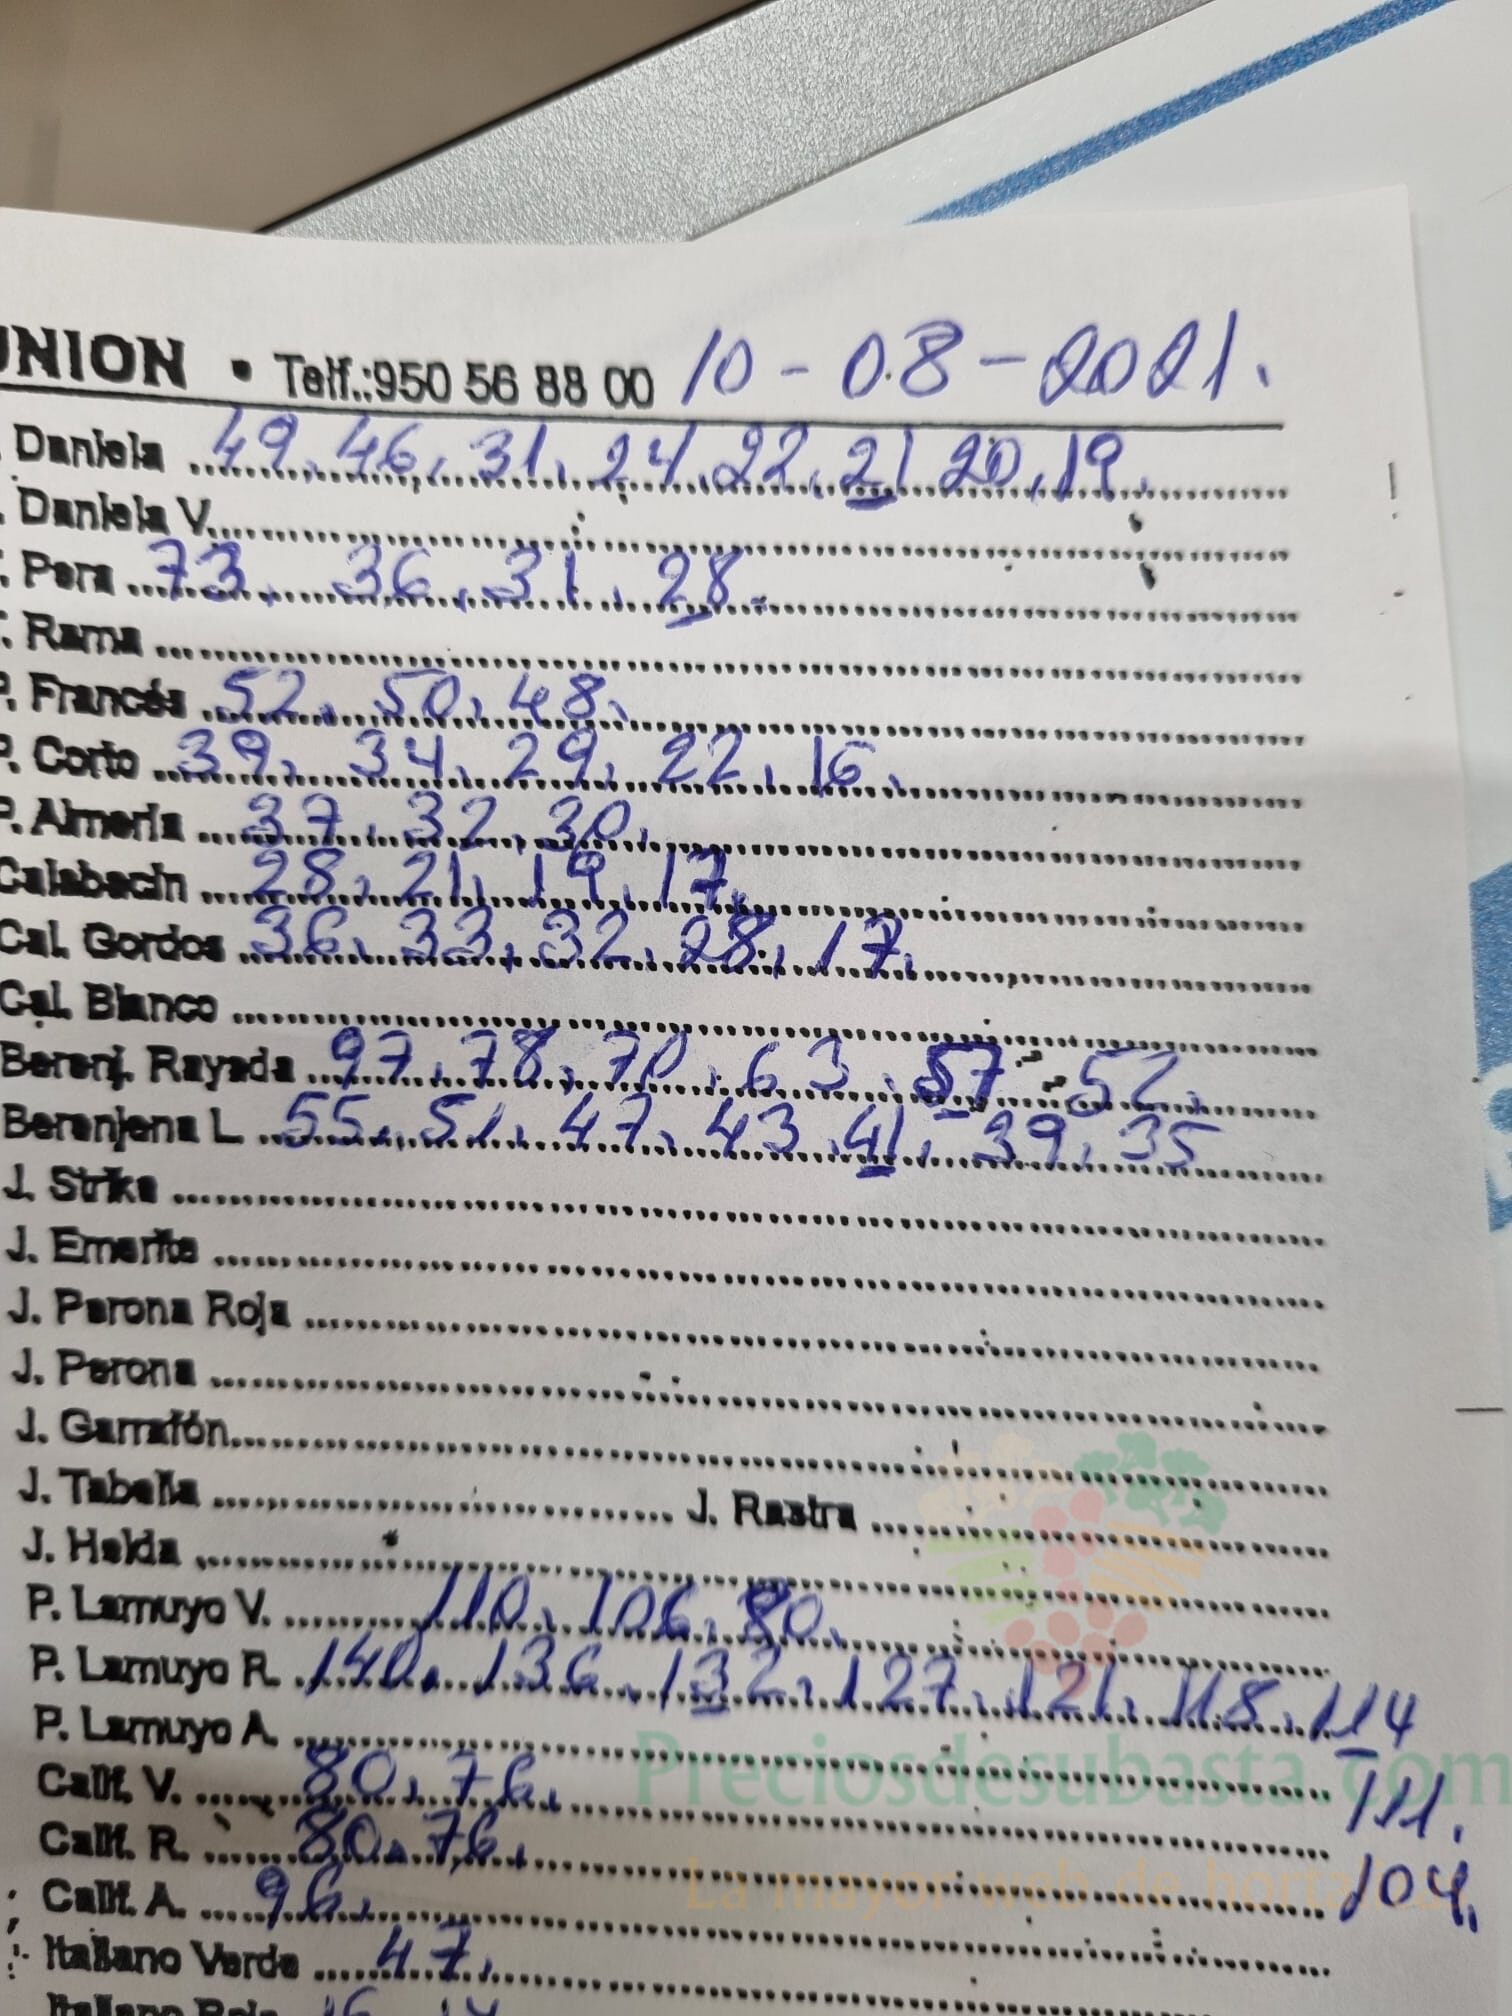 UNION • Telf.:950 56 88 00 10-08-2021.
. Daniela 49. 46. 31. 24. 22. 21 20. 19.
. Daniela V.
. Pera 73. 36. 31. 28.
. Rama
P. Francés 52. 50. 48.
P. Corto 39. 34. 29. 22. 16.
P. Almería 37. 32. 30.
Calabacín 28. 21. 19. 17.
Cal. Gordos 36. 33. 32. 28. 17.
Cal. Blanco
Berenj. Rayada 97. 78. 70. 63. 57. 52.
Berenjena L 55. 51. 47. 43. 41. 39. 35
J. Strike
J. Emerite
J. Perona Roja
J. Perona
J. Garrafón
J. Tabella J. Rastra
J. Helda
P. Lamuyo V. 110. 106. 80.
P. Lamuyo R. 140. 136. 132. 127. 121. 118. 114
P. Lamuyo A.
Preciosdesubasta.com
111.
Calif. V. 80. 76.
Calif. R. 80. 76.
La mayor web de
104.
Calif. A. 96.
Italiano Verde 47.
Italiano